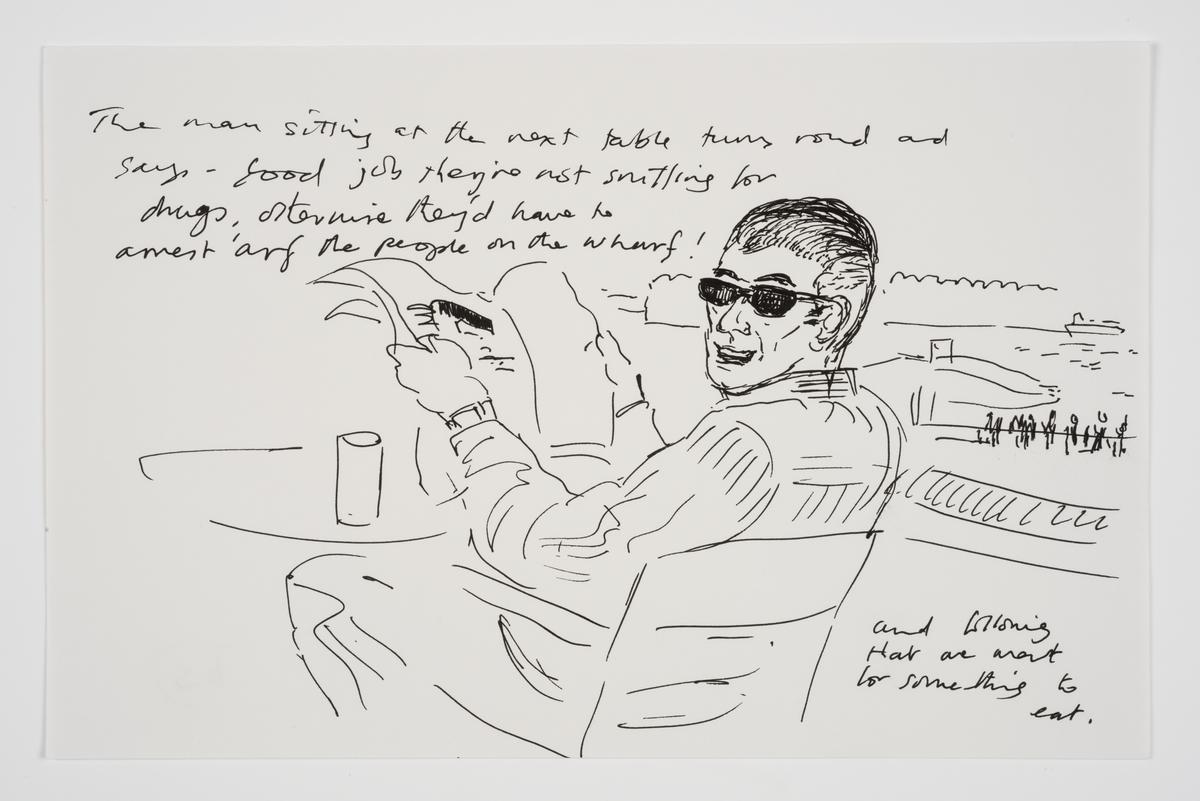 The man sitting at the next table turns round and
says - Good job they're not sniffing for
drugs, otherwise they'd have to
arrest 'arf the people on the wharf!
and following
that we went
for something to
eat.